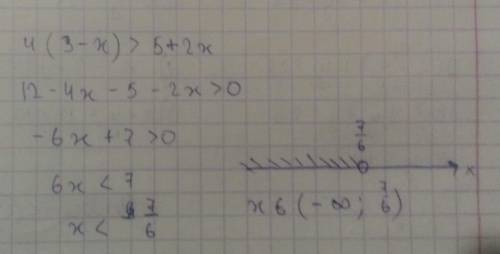 4(3-x)>5+2x
12-4x-5-2x>0
-6x+7>0
6x<7
x< 7/6
7/6
x
x ϵ (-∞; 7/6)